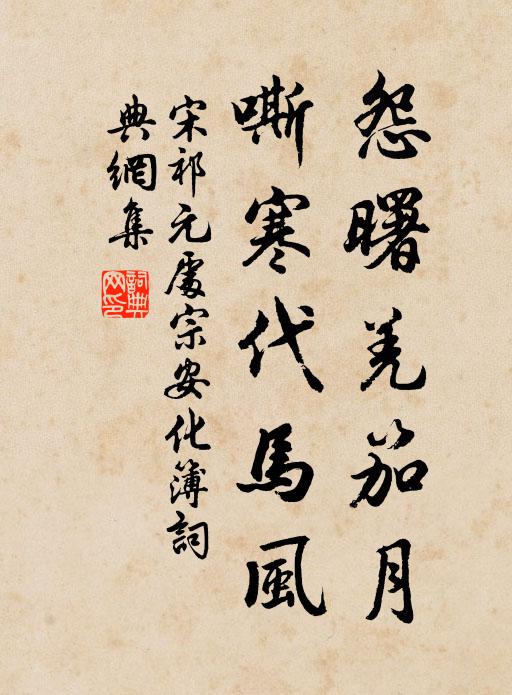 怨曙羌笳月
嘶寒代馬風
宋祁元處宗安化簿詞
典網集
詞典網印